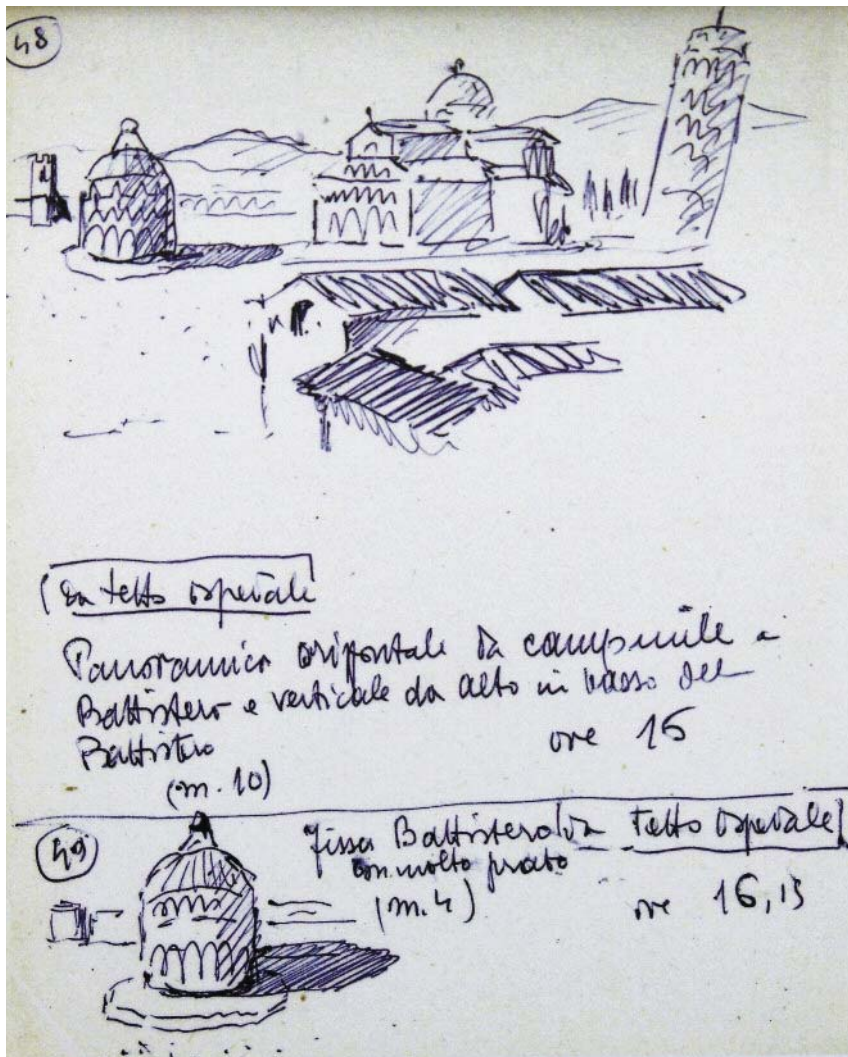 48
da tetto ospedale
Panoramica orizzontale da campanile a
Battistero e verticale da alto in basso del
Battistero
ore 16
(m. 10)
49
Fissa Battistero da tetto ospedale
con molto prato
(m. 4)
ore 16,15